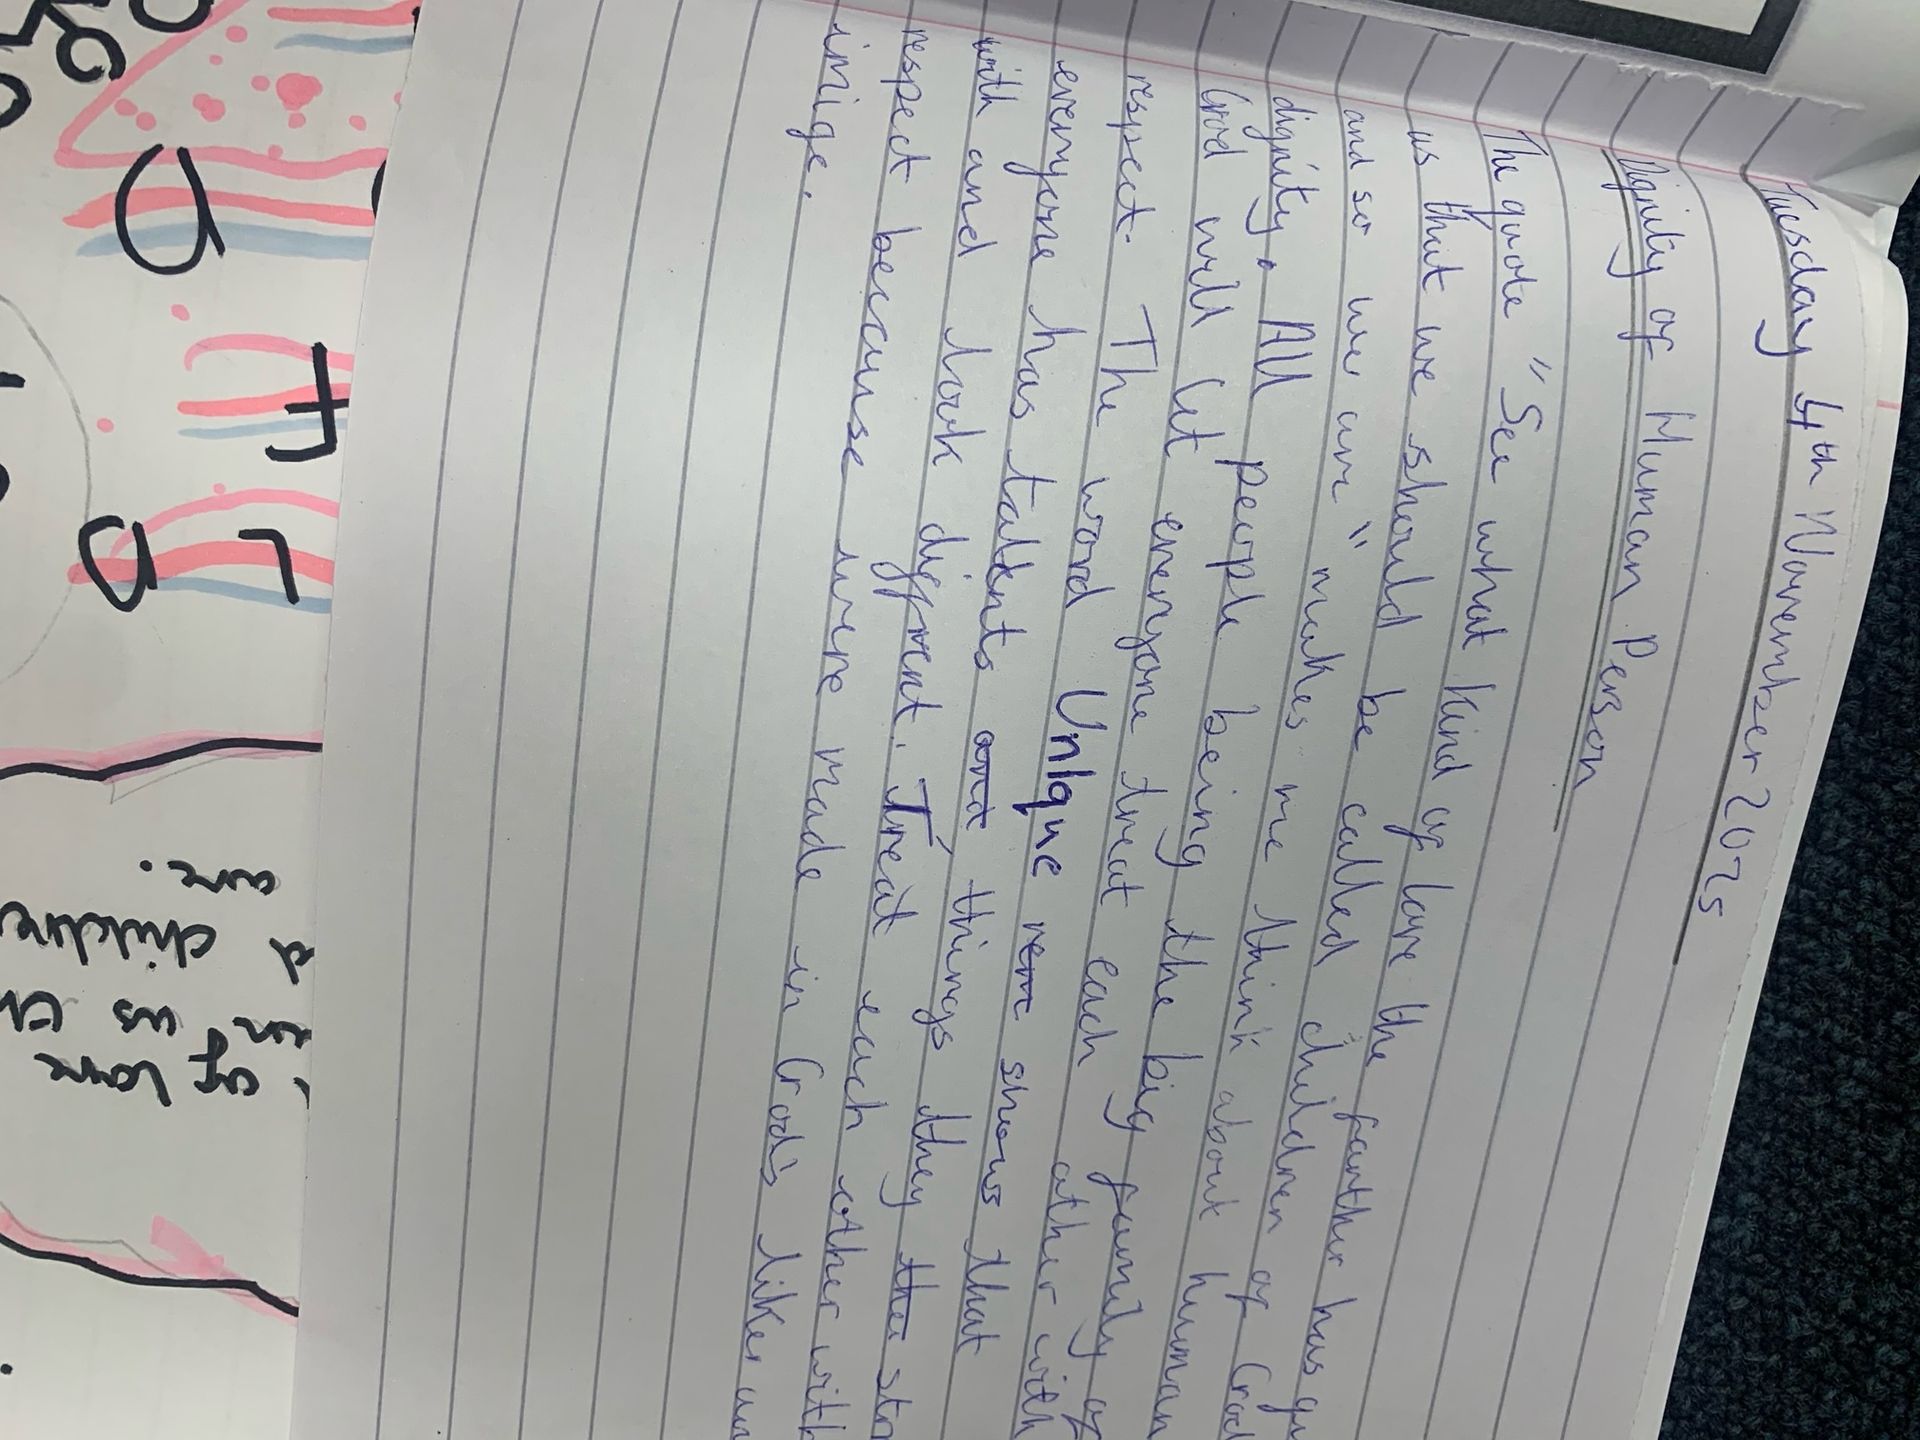 Tuesday 4th November 2025
Dignity of Human Person
The quote "See what kind of love the farther has
us that we should be called children of God
and so we are" makes me think about human
dignity. All people being the big family of
God will let everyone treat each other with
respect. The word Unique shows that
everyone has talents things they
with and look diffrent. Treat each other with
respect because were made in God's liker
imige.
of love
us
a childre
are.